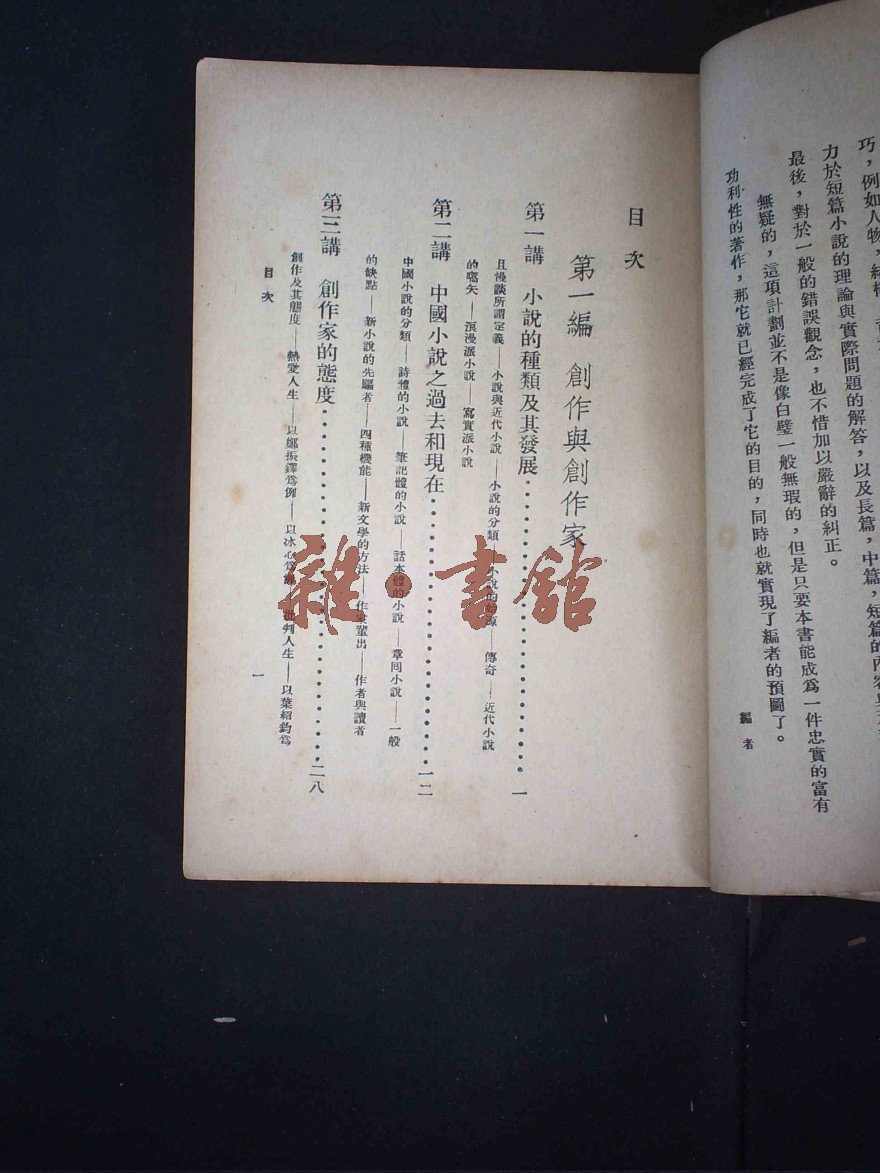 巧，例如人物，結構，
力於短篇小說的理論與實際問題的解答，以及長篇，中篇，短篇的內容與
最後，對於一般的錯誤觀念，也不惜加以嚴辭的糾正。
無疑的，這項計劃並不是像白璧一般無瑕的，但是只要本書能成爲一件忠實的富有
功利性的著作，那它就已經完成了它的目的，同時也就實現了編者的預圖了。
編者
目次
第一編 創作與創作家
第一講 小說的種類及其發展・・・・・・・・・・・・・・・・・・一
且慢談所謂定義——小說與近代小說——小說的分類——小說的起源——傳奇——近代小說
的嚆矢——浪漫派小說——寫實派小說
第二講 中國小說之過去和現在・・・・・・・・・・・・・・・・・一二
中國小說的分類——詩體的小說——筆記體的小說——話本體的小說——章回小說——一般
的缺點——新小說的先驅者——四種機能——新文學的方法——作家輩出——作者與讀者
第三講 創作家的態度・・・・・・・・・・・・・・・・・・・・・・二八
創作及其態度——熱愛人生——以鄭振鐸爲例——以冰心爲例——批判人生——以葉紹鈞爲
目次
一
雜·書館